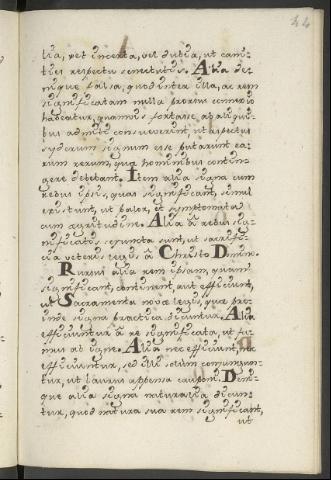 44
lia, vel incerta, vel dubia, ut cani-
tiei respectu senectutis. Alia de-
nique falsa, quod inter illa, ac rem
significatam nulla prorsus connexio
habeatur, quamvis fortasse ab aliqui-
bus admitti consueverint, ut aspectus
syderum signum esse putarunt ea-
rum rerum, quæ hominibus contin-
gere debebant. Item alia signa cum
rebus ipsis, quas significant, simul
existunt, ut palor, et symptomata
cum ægritudine. Alia à rebus sig-
nificatis sejuncta sunt, ut sacrifi-
cia veteris legis à Christo Domino.
Rursus alia rem ipsam, quam
significant, continent, aut efficiunt,
ut Sacramenta novæ legis, quæ pro-
inde signa practica dicuntur. Alia
efficiuntur à re significata, ut fu-
mus ab igne. Alia nec efficiunt, nec
efficiuntur, sed illi solum conjungun-
tur, ut laurus appensa cauponæ. Deni-
que alia signa naturalia dicun-
tur, quod natura sua rem significant,
ut